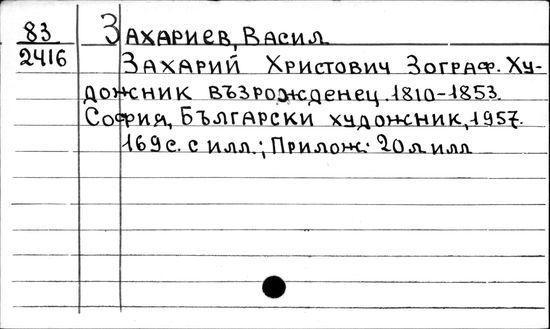 83
2416
Захариев, Васил
Захарий Христович Зограф. Ху-
дожник възрожденец. 1810-1853.
София, Български художник, 1957.
169 с. с илл.; Прилож: 20 л илл